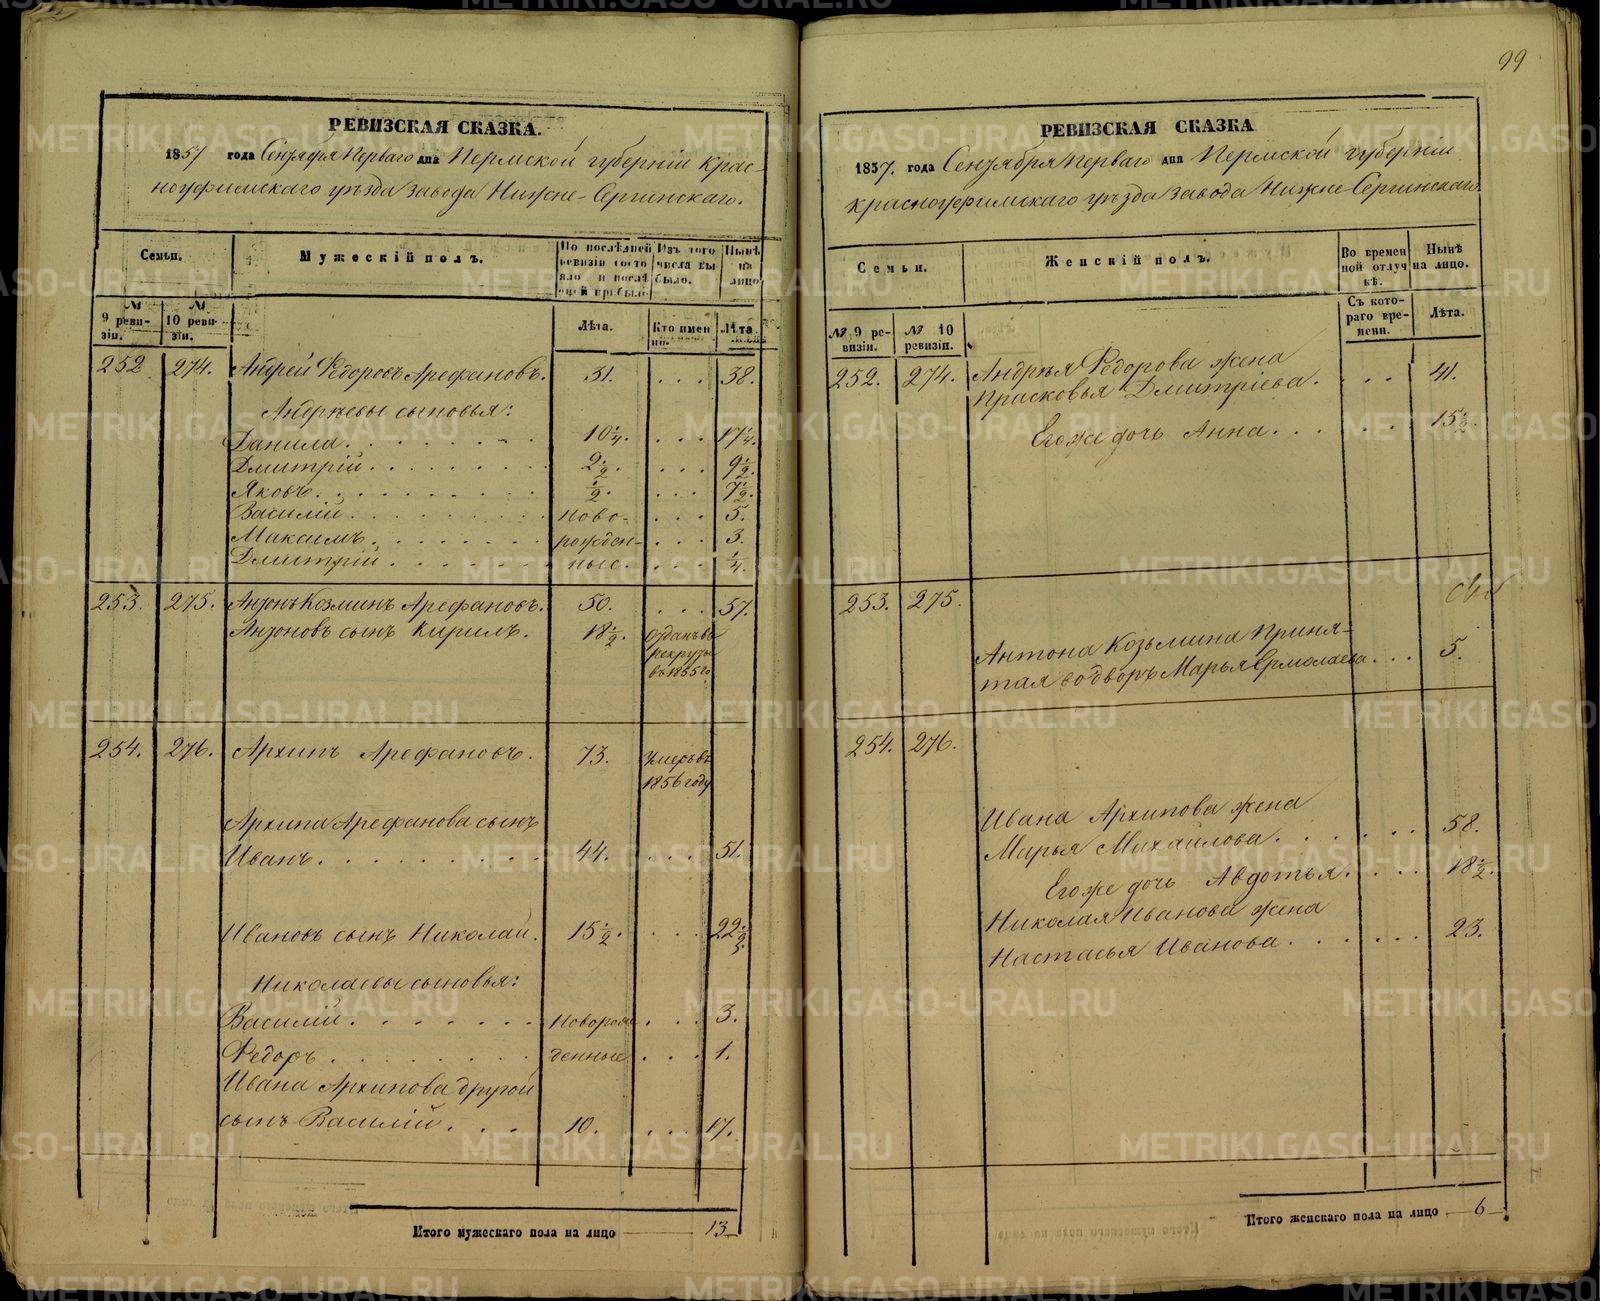 99
РЕВИЗСКАЯ СКАЗКА.
1857 года Сентября Перваго дня Пермской губерніи Крас-
ноуфимскаго уѣзда завода Нижне-Сергинскаго.
Семьи. Мужескій полъ. По послѣдней ревизіи состояло и послѣ оной прибыло Изъ того числа выбыло. Нынѣ на лицо
№ 9 ревизіи. № 10 ревизіи. Лѣта. Кто имен но. Лѣта.
252 274. Андрей Ѳедоровъ Арефановъ. 31. . . . 38.
Андреевы сыновья:
Данила. 10 1/4. . . . 17 1/4.
Дмитрій. 2 1/2. . . . 9 1/2.
Яковъ. 1/2. . . . 7 1/2.
Василій. ново- . . . 5.
Максимъ. рожден- . . . 3.
Дмитрій. ные. . . . 1/4.
253. 275. Антонъ Козминъ Арефановъ. 50. . . . 57.
Антоновъ сынъ Кирилъ. 18 1/2. Отданъ въ
рекруты
въ 1855 го
254. 276. Архипъ Арефановъ. 73. Умеръ въ
1856 году
Архипа Арефанова сынъ
Иванъ. 44. . . . 51.
Ивановъ сынъ Николай. 15 1/2. . . . 22 1/2
Николаевы сыновья:
Василій. новорож . . . 3.
Ѳедоръ. денные . . . 1.
Ивана Архипова другой
сынъ Василій. 10. . . . 17.
Итого мужескаго пола на лицо 13
РЕВИЗСКАЯ СКАЗКА
1857. года Сентября Перваго дня Пермской губерніи
красноуфимскаго уѣзда завода Нижне-Сергинскаго
Семьи. Женскій полъ. Во времен ной отлуч кѣ. Нынѣ на лицо.
№ 9 ре- визіи. № 10 ревизіи. Съ кото- раго вре- мени. Лѣта.
252. 274. Андрѣя Ѳедорова жена
Прасковья Дмитріева. . . . 41.
Егоже дочь Анна. . . . 15 1/2.
253. 275.
Антона Козьмина Приня-
тая во дворъ Марья Ермолаева. . . 5.
254. 276.
Ивана Архипова жена
Марья Михайлова. . . . 58.
Егоже дочь Авдотья. . . . 18 1/2.
Николая Иванова жена
Настасья Иванова. . . . 23.
Итого женскаго пола на лицо 6
METRIKI.GASO-URAL.RU